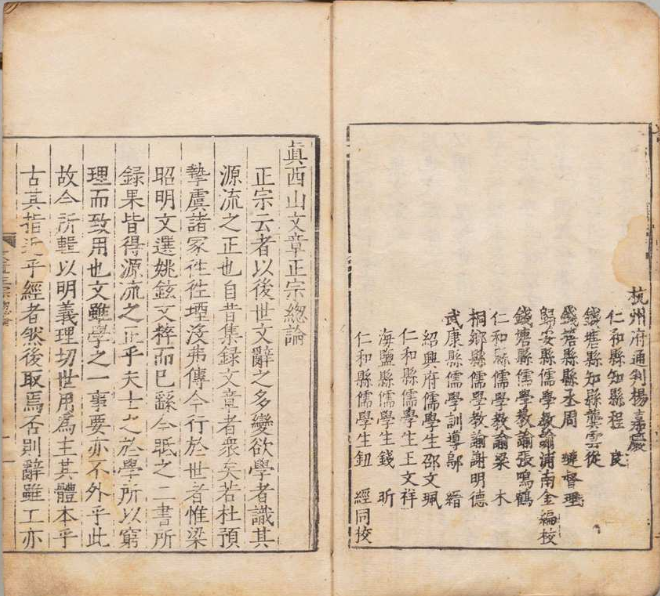 杭州府通判楊嘉慶
仁和縣知縣程 良
錢塘縣知縣龔雲從
錢塘縣縣丞周 督理
歸安縣儒學教諭浦南金編校
錢塘縣儒學教諭張鳴鶴
仁和縣儒學教諭梁 木
桐鄉縣儒學教諭謝明德
武康縣儒學訓導鄔 縉
紹興府儒學生邵文珮
仁和縣儒學生王文祥
海鹽縣儒學生錢 昕
仁和縣儒學生鈕 經同校
眞西山文章正宗總論
正宗云者以後世文辭之多變欲學者識其
源流之正也自昔集録文章者衆矣若杜預
摯虞諸家徃徃堙没弗傳今行於世者惟梁
昭明文選姚鉉文粹而已繇今眂之二書所
録果皆得源流之正乎夫士之於學所以窮
理而致用也文雖學之一事要亦不外乎此
故今所輯以明義理切世用爲主其體本乎
古其指近乎經者然後取焉否則辭雖工亦